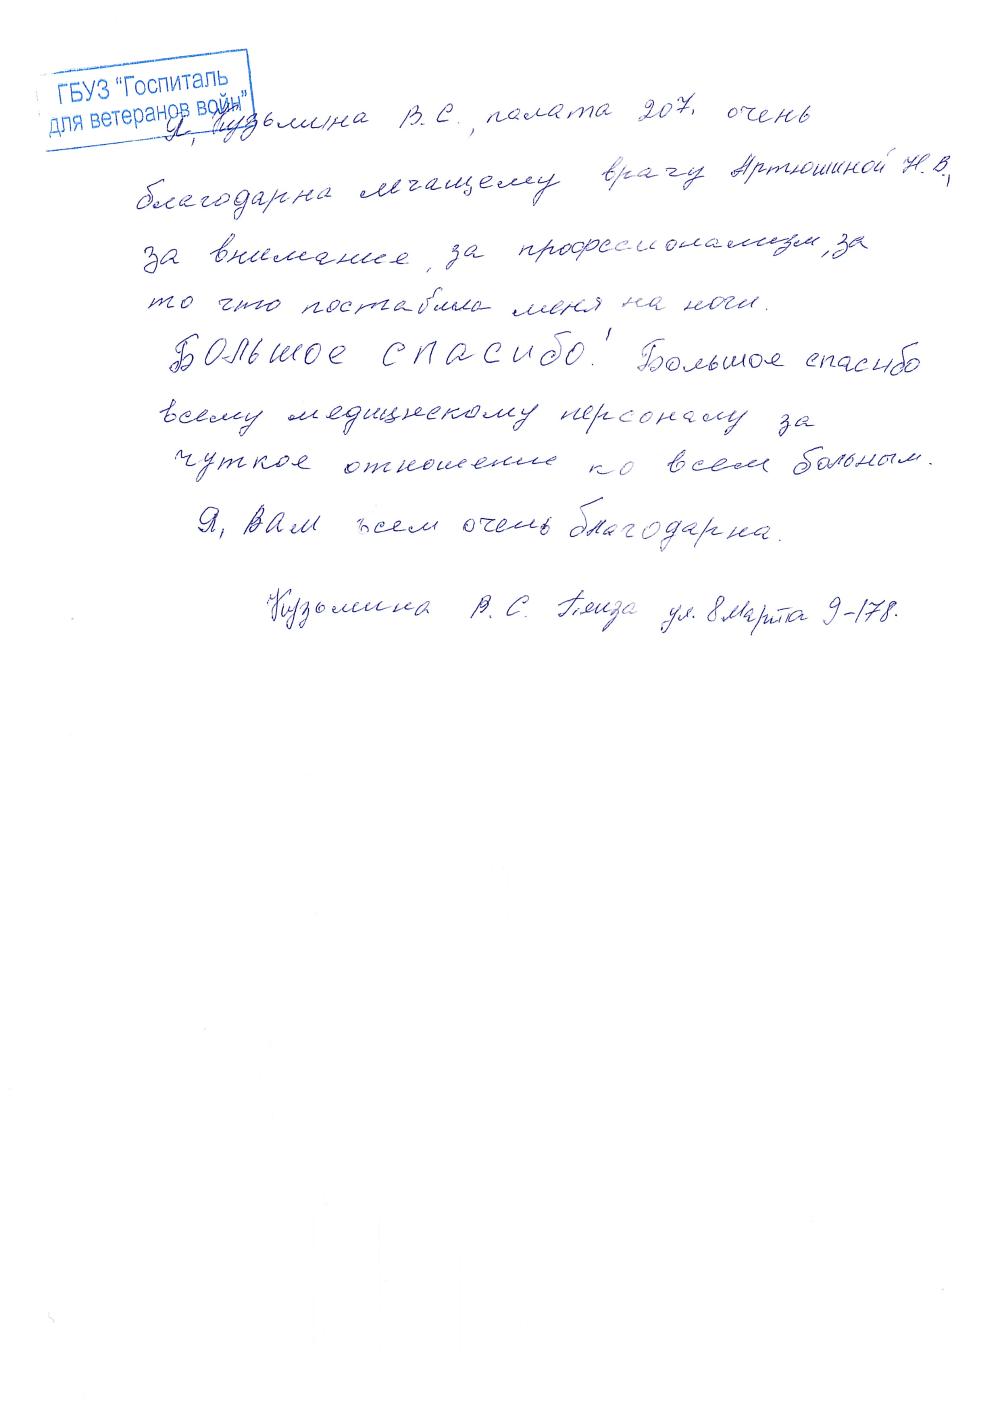 ГБУЗ "Госпиталь
для ветеранов войн"
Я, Кузьмина В.С., палата 207. очень
благодарна лечащему врачу Артюшиной Н.В.,
за внимание, за профессионализм, за
то что поставила меня на ноги.
Большое спасибо! Большое спасибо
всему медицнскому персоналу за
чуткое отношение ко всем больным.
Я, Вам всем очень благодарна.
Кузьмина В. С. Пенза ул. 8 Марта 9-178.